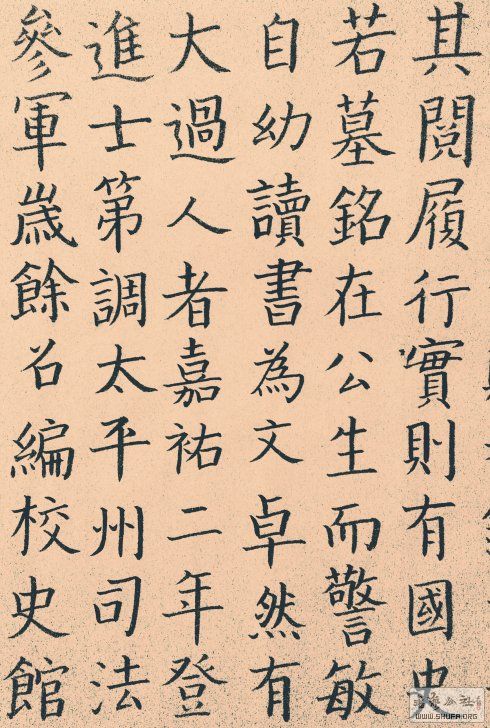 其閱履行實則有國史
若墓銘在公生而警敏
自幼讀書為文卓然有
大過人者嘉祐二年登
進士第調太平州司法
參軍歲餘召編校史館
WWW.SHUFA.ORG